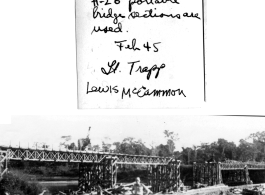 H-20 portable
bridge sections are
used.
Feb 45
Lt. Trapp
Lewis McCammon